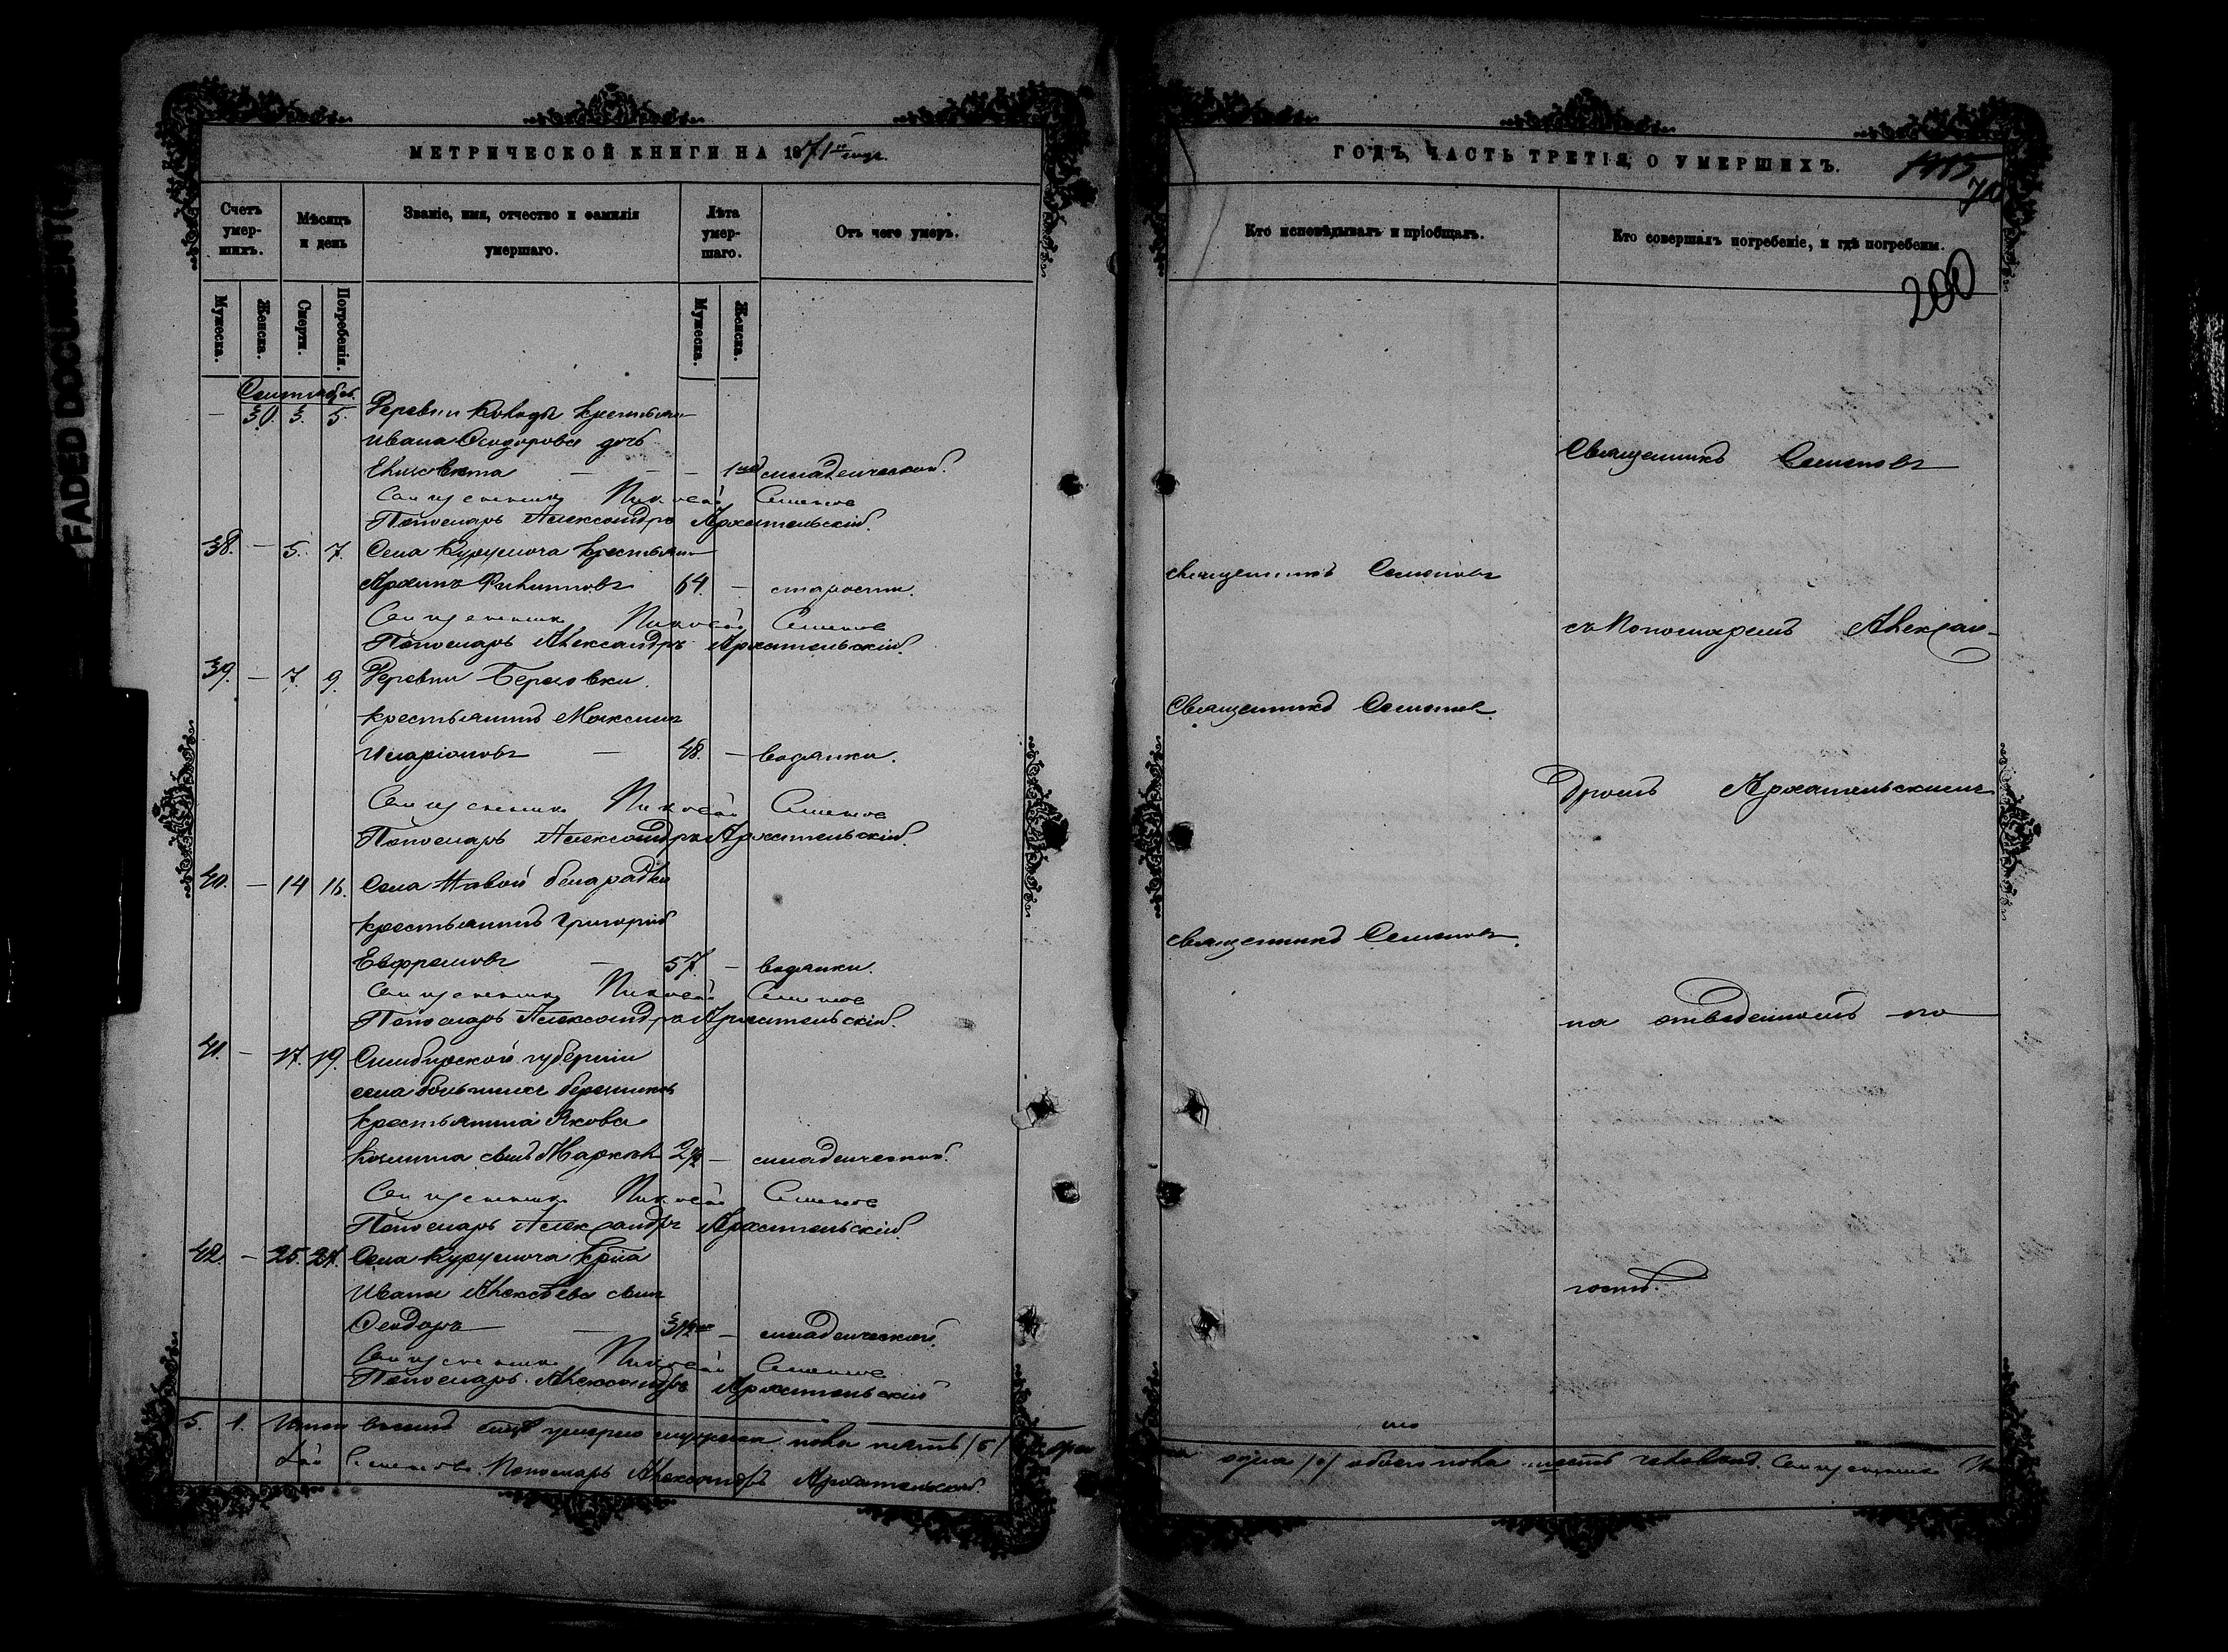 FADED DOCUMENT(S)
МЕТРИЧЕСКОЙ КНИГИ НА 1871й годъ.
Счетъ умер-шихъ.
Мѣсяцъ и день
Званіе, имя, отчество и фамилія умершаго.
Лѣта умер-шаго.
Отъ чего умеръ.
Мужеска.
Женска.
Смерти.
Погребенія.
Мужеска.
Женска.
Сентябрь.
— 30. 3. 5. Деревни крестьянина
Ивана Ѳеодорова дочь
Елисавета — — — 1 младенческой.
Священникъ Николай Семеновъ
Пономарь Александръ Архангельскій.
38. — 5. 7. Села Курумоча крестьянинъ
Архипъ Филипповъ 64. — старости.
Священникъ Николай Семеновъ
Пономарь Александръ Архангельскій.
39. — 7. 9. Деревни Березовки
крестьянинъ Максимъ
Иларіоновъ — 48. — водянки.
Священникъ Николай Семеновъ
Пономарь Александръ Архангельскій.
40. — 14 16. Села Новой Бинарадки
крестьянинъ Григорій
Евфремовъ — 57. — водянки.
Священникъ Николай Семеновъ
Пономарь Александръ Архангельскій.
41. — 17. 19. Симбирской губерніи
села большихъ березниковъ
крестьянина Якова
сынъ 2 — младенческой.
Священникъ Николай Семеновъ
Пономарь Александръ Архангельскій.
42. — 25. 27. Села Курумоча кр-на
Ивана Алексѣева сынъ
Ѳеодоръ — — младенческой.
Священникъ Николай Семеновъ
Пономарь Александръ Архангельскій
5. 1. умерло мужеска пола пять /5/
Семеновъ. Пономарь Александръ Архангельскій.
ГОДЪ, ЧАСТЬ ТРЕТІЯ, О УМЕРШИХЪ.
200
Кто исповѣдывалъ и пріобщалъ.
Кто совершалъ погребеніе, и гдѣ погребены.
Священникъ Семеновъ
священникъ Семеновъ
съ Пономаремъ Алексан-
Священникъ Семеновъ.
дромъ Архангельскимъ
священникъ Семеновъ.
на отведенномъ по-
гостѣ.
одна /1/ обоего пола шесть человѣкъ. Священникъ